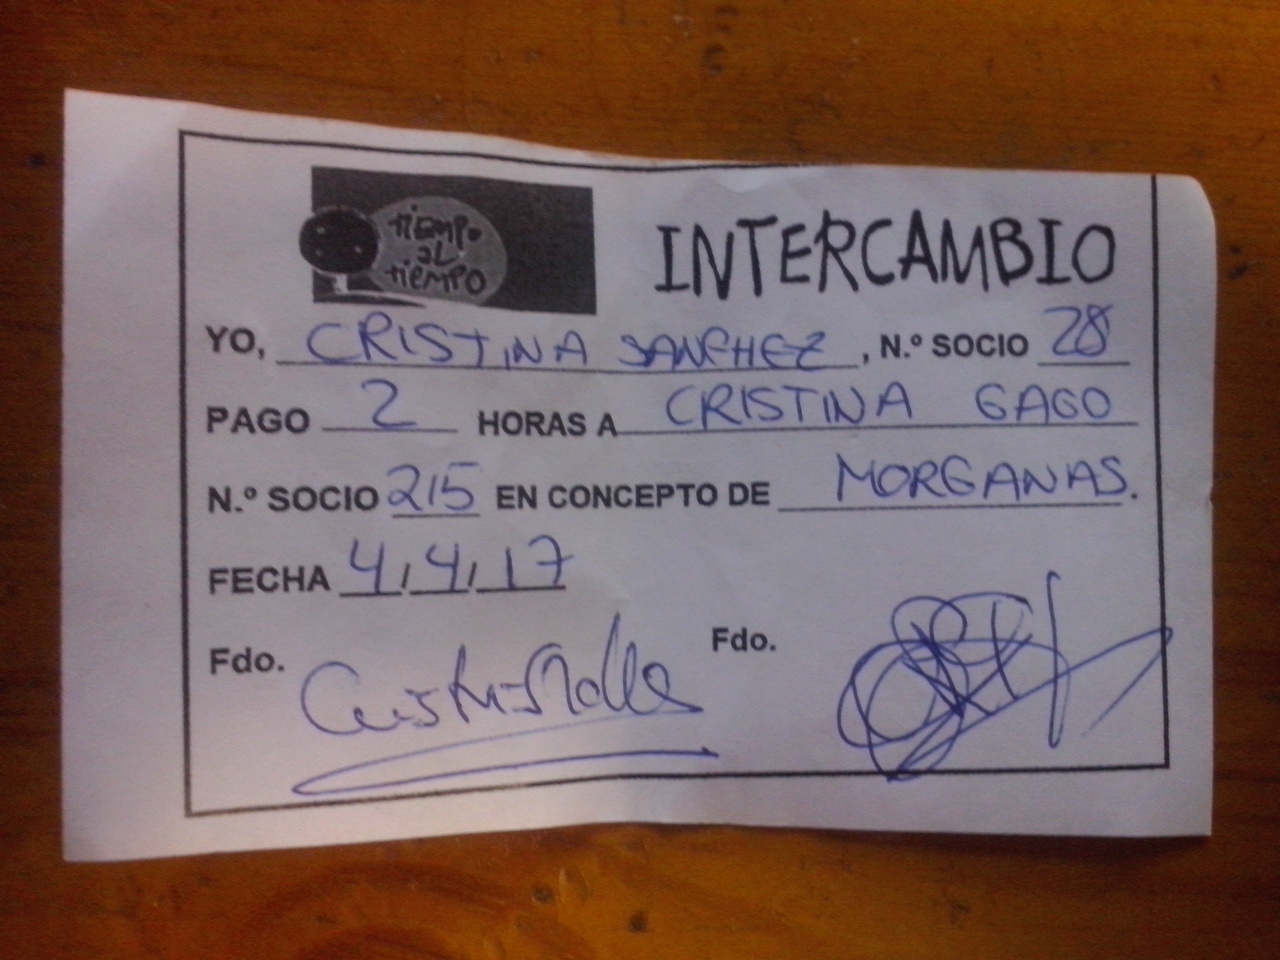 tiEMPO
aL
tiEMPO
INTERCAMBIO
YO, CRISTINA SANCHEZ, N.º SOCIO 28
PAGO 2 HORAS A CRISTINA GAGO
N.º SOCIO 215 EN CONCEPTO DE MORGANAS.
FECHA 4/4/17
Fdo. Fdo.